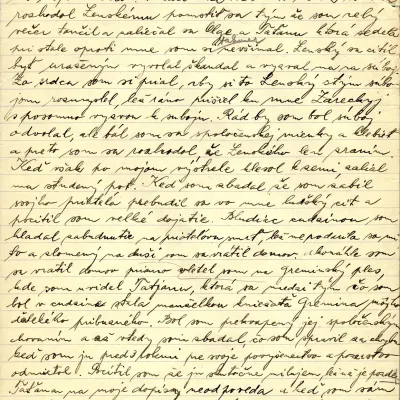 rozhodol Lenskému pomstiť sa tým že som celý
večer tančil a zabával sa Olgu a Taťanu ktorá sedela
pri stole oproti mne som si nevšímal. Lenský sa cítil
byť urazeným vyvolal škandal a vyzval ma na súboj.
Zo srdca som si prial, aby si to Lenský s tým súbo
jom rozmyslel, lež ráno prišiel ku mne Zareckyj
s písomnou výzvou k súboju. Rád by som bol súboj
odvolal, ale bál som sa spoločenskej mienky a klebiet
a preto som sa rozhodol že Lenského len zraním.
Keď však po mojom výstrele klesol k zemi zalial
ma studený pot. Keď som zbadal že som zabil
svojho priateľa prebudil sa vo mne ľudský cit a
pocítil som veľké dojatie. Blúdiac cudzinou som
hladal zabudnutie na priateľovu smrť, lež nepodarilo sa mi
to a zlomený na duši som sa vrátil domov, akonáhle som
sa vrátil domov priamo vletel som na Greminský ples,
kde som uvidel Taťjanu, ktorá sa medzi tým čo som
bol v cudzine stala manželkou kniežaťa Gremina, môjho
ďalekého príbuzného. Bol som prekvapený jej spoločenským
chovaním a až vtedy som zbadal, čo som spravil za chybu
keď som ju pred rokmi pre svoje povýšenectvo a
odmietol. Pocítil som že ju skutočne milujem, lež už je pozde
Taťana na moje dopisy neodpoveda a keď som sám